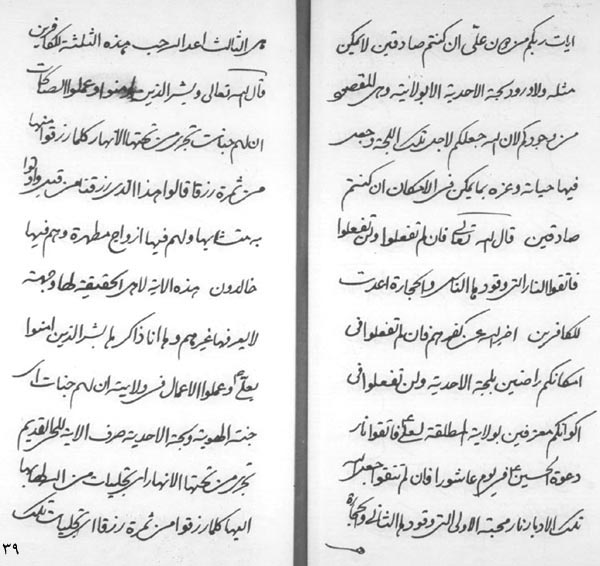 ايات ربكم من دون علي ان كنتم صادقين لا يمكن
مثله ولا ورود لجة الاحدية الا بولايته وهي المقصود
من وجودكم لان الله جعلكم لاجل تلك اللجة وجعل
فيها حياته وعزه بما يمكن في الامكان ان كنتم
صادقين قال الله تعالى فان لم تفعلوا ولن تفعلوا
فاتقوا النار التي وقودها الناس والحجارة اعدت
للكافرين اخبر الله عن كفرهم فان لم تفعلوا في
امكانكم راضين بلجة الاحدية ولن تفعلوا في
اكوانكم معترفين بولاية المطلقة لعلي فاتقوا نار
دعوة الحسين في يوم عاشورا فان لم تتقوا جعل الله
تلك الادبار نار محبته الاولى التي وقودها الثاني والحجارة
هي الثالث اعد الرب هذه الثلثة للكافرين
قال الله تعالى وبشر الذين امنوا وعملوا الصالحات
ان لهم جنات تجري من تحتها الانهار كلما رزقوا منها
من ثمرة رزقا قالوا هذا الذي رزقنا من قبل واوتوا
به متشابها ولهم فيها ازواج مطهرة وهم فيها
خالدون هذه الاية لاهل الحقيقة لها وجهة
لا يعرفها غيرهم وها انا ذاكرها بشر الذين امنوا
بعلي وعملوا الاعمال في ولايته ان لهم جنات اي
جنة الهوية ولجة الاحدية صرف الاية للحي القديم
تجري من تحتها الانهار اي تجليات من الله لها بها
اليها كلما رزقوا من ثمرة رزقا اي تجليات تلك
٣٩